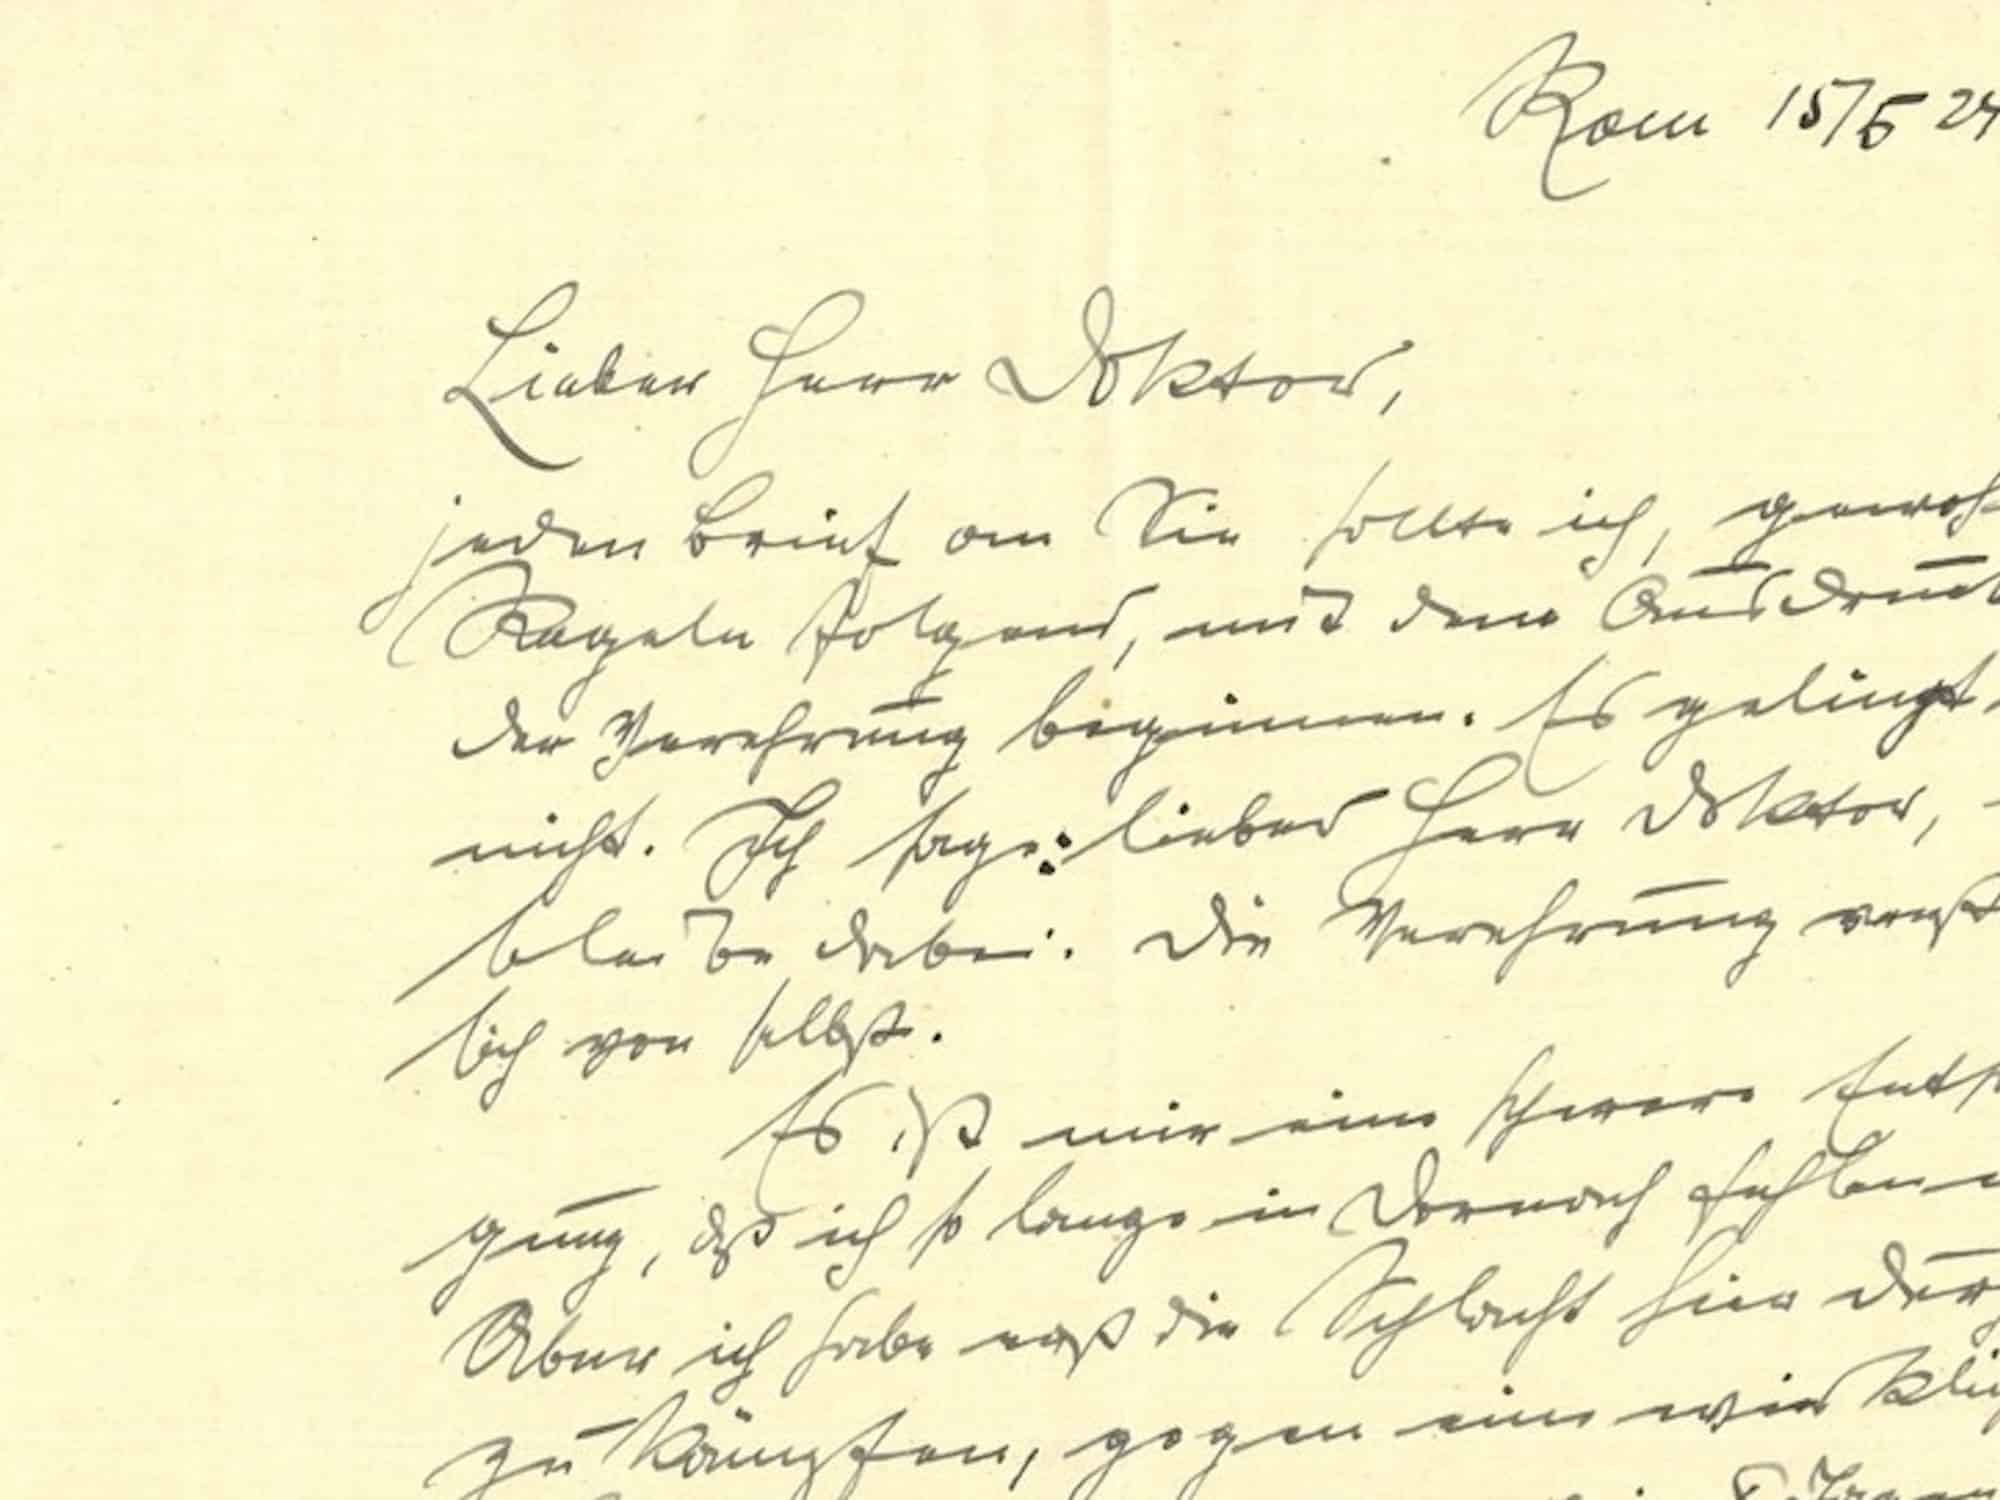 Rom 15/5 24
Lieber Herr Doktor,
jeden Brief an Sie sollte ich,
Regeln folgend, mit dem Ausdruck
der Verehrung beginnen. Es gelingt
nicht. Ich sage: lieber Herr Doktor,
bleibe dabei. Die Verehrung
sich von selbst.
Es ist mir eine schwere
gung, daß ich so lange in Dornach fehlen
Aber ich habe erst die Schlacht hier
zu kämpfen, gegen eine